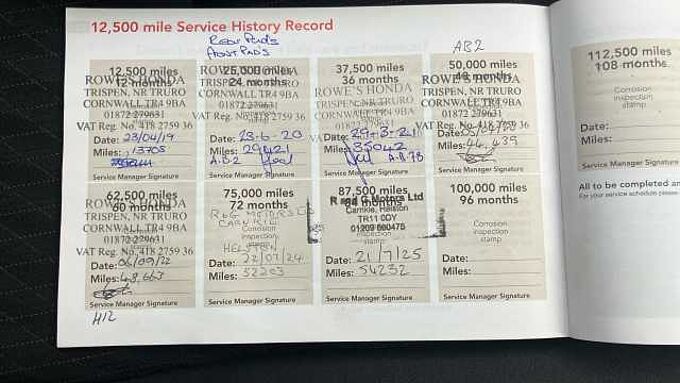 12,500 mile Service History Record
Rear Pads
Front Pads
AB2
12,500 miles
12 months
ROWE'S HONDA
TRISPEN, NR TRURO
CORNWALL TR4 9BA
01872 279631
VAT Reg. No. 418 2759 36
Date: 23/04/19
Miles: 13705
Service Manager Signature
25,000 miles
24 months
ROWE'S HONDA
TRISPEN, NR TRURO
CORNWALL TR4 9BA
01872 279631
VAT Reg. No. 418 2759 36
Date: 23-6-20
Miles: 29421
A-B-2
Service Manager Signature
37,500 miles
36 months
ROWE'S HONDA
TRISPEN, NR TRURO
CORNWALL TR4 9BA
01872 279631
VAT Reg. No. 418 2759 36
Date: 29-3-21
Miles: 35042
Service Manager Signature
50,000 miles
48 months
ROWE'S HONDA
TRISPEN, NR TRURO
CORNWALL TR4 9BA
01872 279631
VAT Reg. No. 418 2759 36
Date:
Miles: 44,439
Service Manager Signature
62,500 miles
60 months
ROWE'S HONDA
TRISPEN, NR TRURO
CORNWALL TR4 9BA
01872 279631
VAT Reg. No. 418 2759 36
Date: 06/09/22
Miles: 48,663
Service Manager Signature
75,000 miles
72 months
R&G MOTORS LTD
CARNKIE
Corrosion
inspection
stamp
HELSTON
Date: 22/07/24
Miles: 52203
Service Manager Signature
87,500 miles
84 months
R and G Motors Ltd
Carnkie, Helston
TR11 0DY
01209 860475
stamp
Date: 21/7/25
Miles: 54232
Service Manager Signature
100,000 miles
96 months
Corrosion
inspection
stamp
Date:
Miles:
Service Manager Signature
112,500 miles
108 months
Corrosion
inspection
stamp
Date:
Miles:
Service Manager Signature
All to be completed an
For your service schedule please